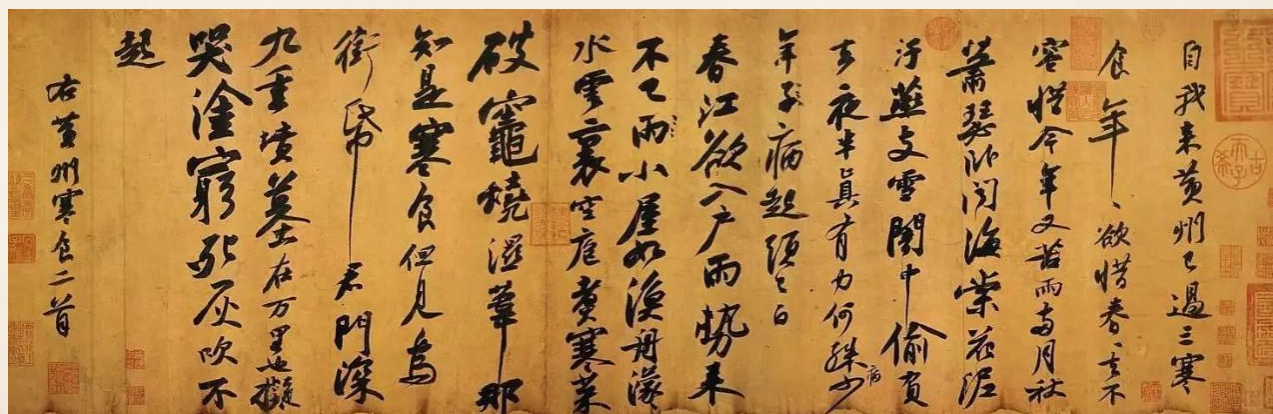 自我来黄州已過三寒
食年〻欲惜春〻去不
容惜今年又苦雨兩月秋
蕭瑟卧聞海棠花泥
汙燕支雪闇中偷負
去夜半真有力何殊少
病
年子病起須已白
春江欲入戶雨勢来
不已雨〻小屋如漁舟濛〻
水雲裏空庖煮寒菜
破竈燒濕葦那
知是寒食但見烏
銜帋君門深
九重墳墓在万里也擬
哭塗窮死灰吹不
起
右黄州寒食二首
古希天子